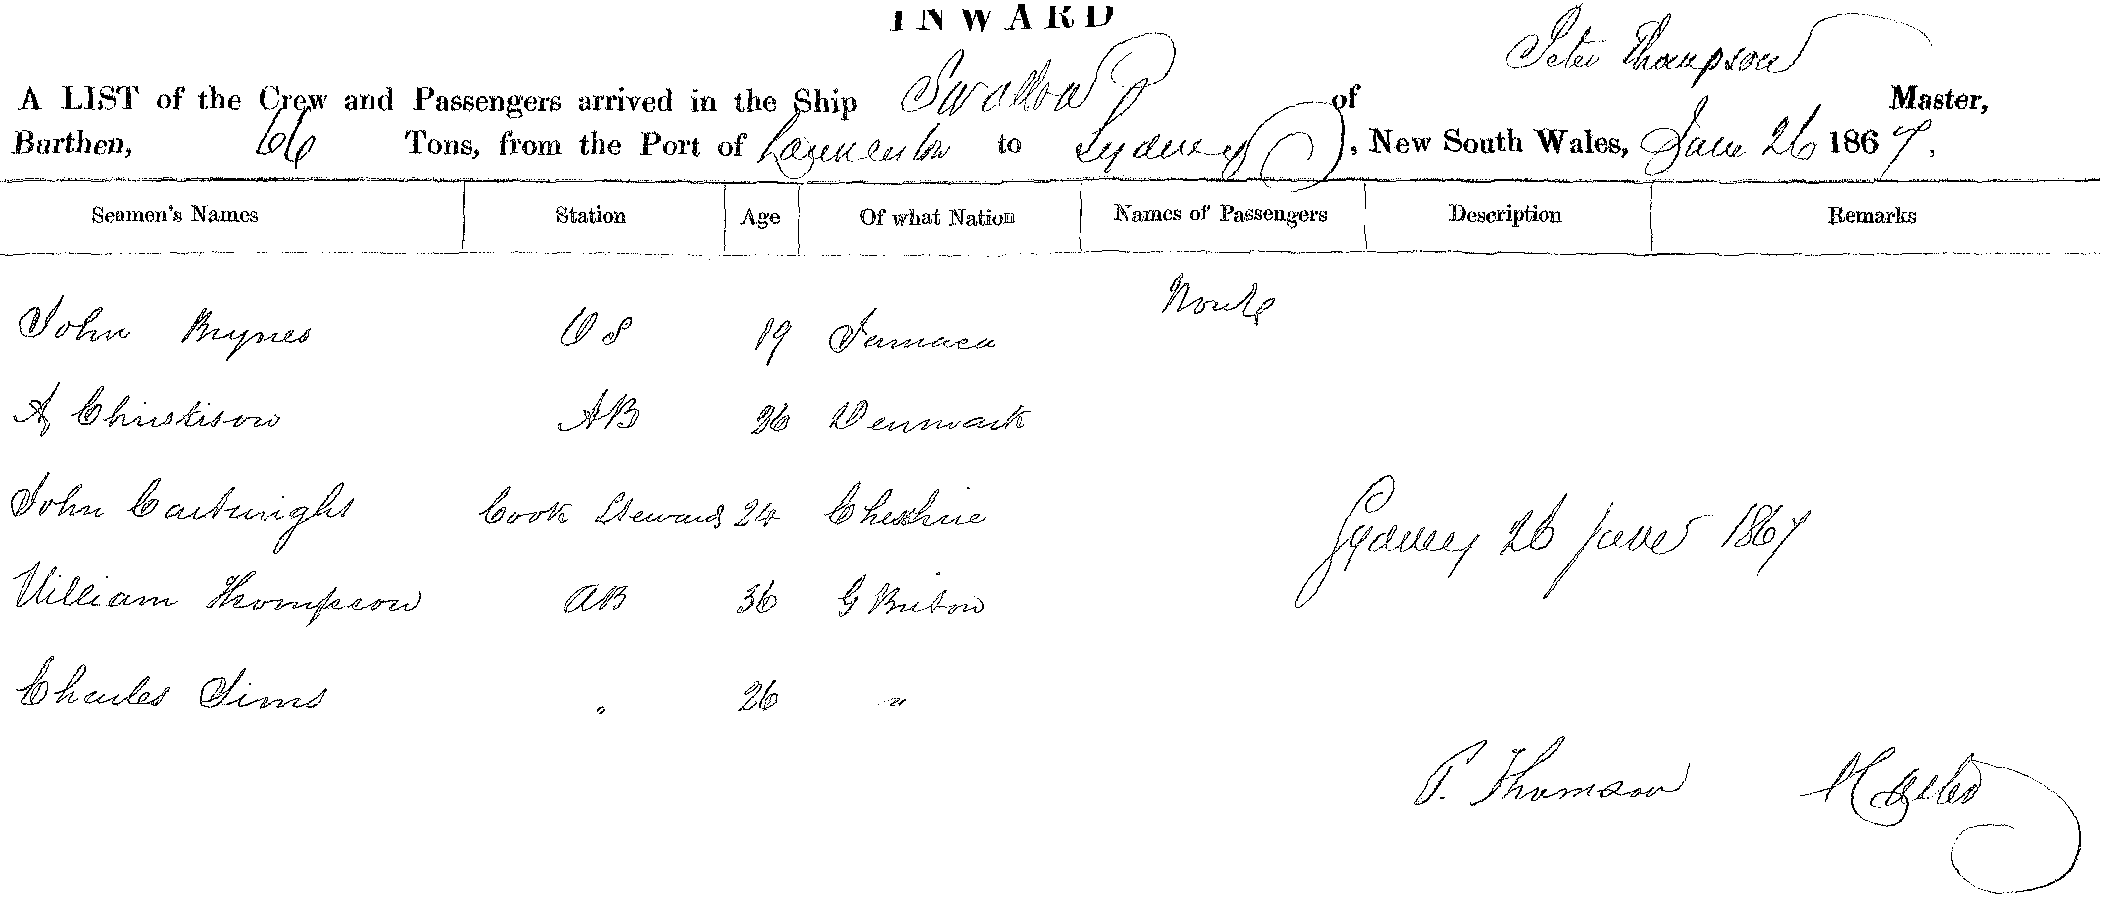 INWARD
Peter Thompson
A LIST of the Crew and Passengers arrived in the Ship Swallow of Master,
Burthen, 66 Tons, from the Port of to Sydney, New South Wales, June 26 1867.
Seamen's Names Station Age Of what Nation Names of Passengers Description Remarks
None
John Brynes OS 19 Jamaca
A Christison AB 26 Denmark
John Cartwright Cook Steward 24 Cheshire
William Thompson AB 36 G Briton
Sydney 26 June 1867
Charles Sims " 26 "
P. Thomson Master